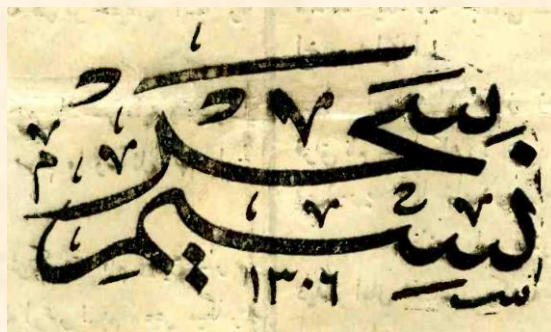 نسيم
سحر
١٣٠٦